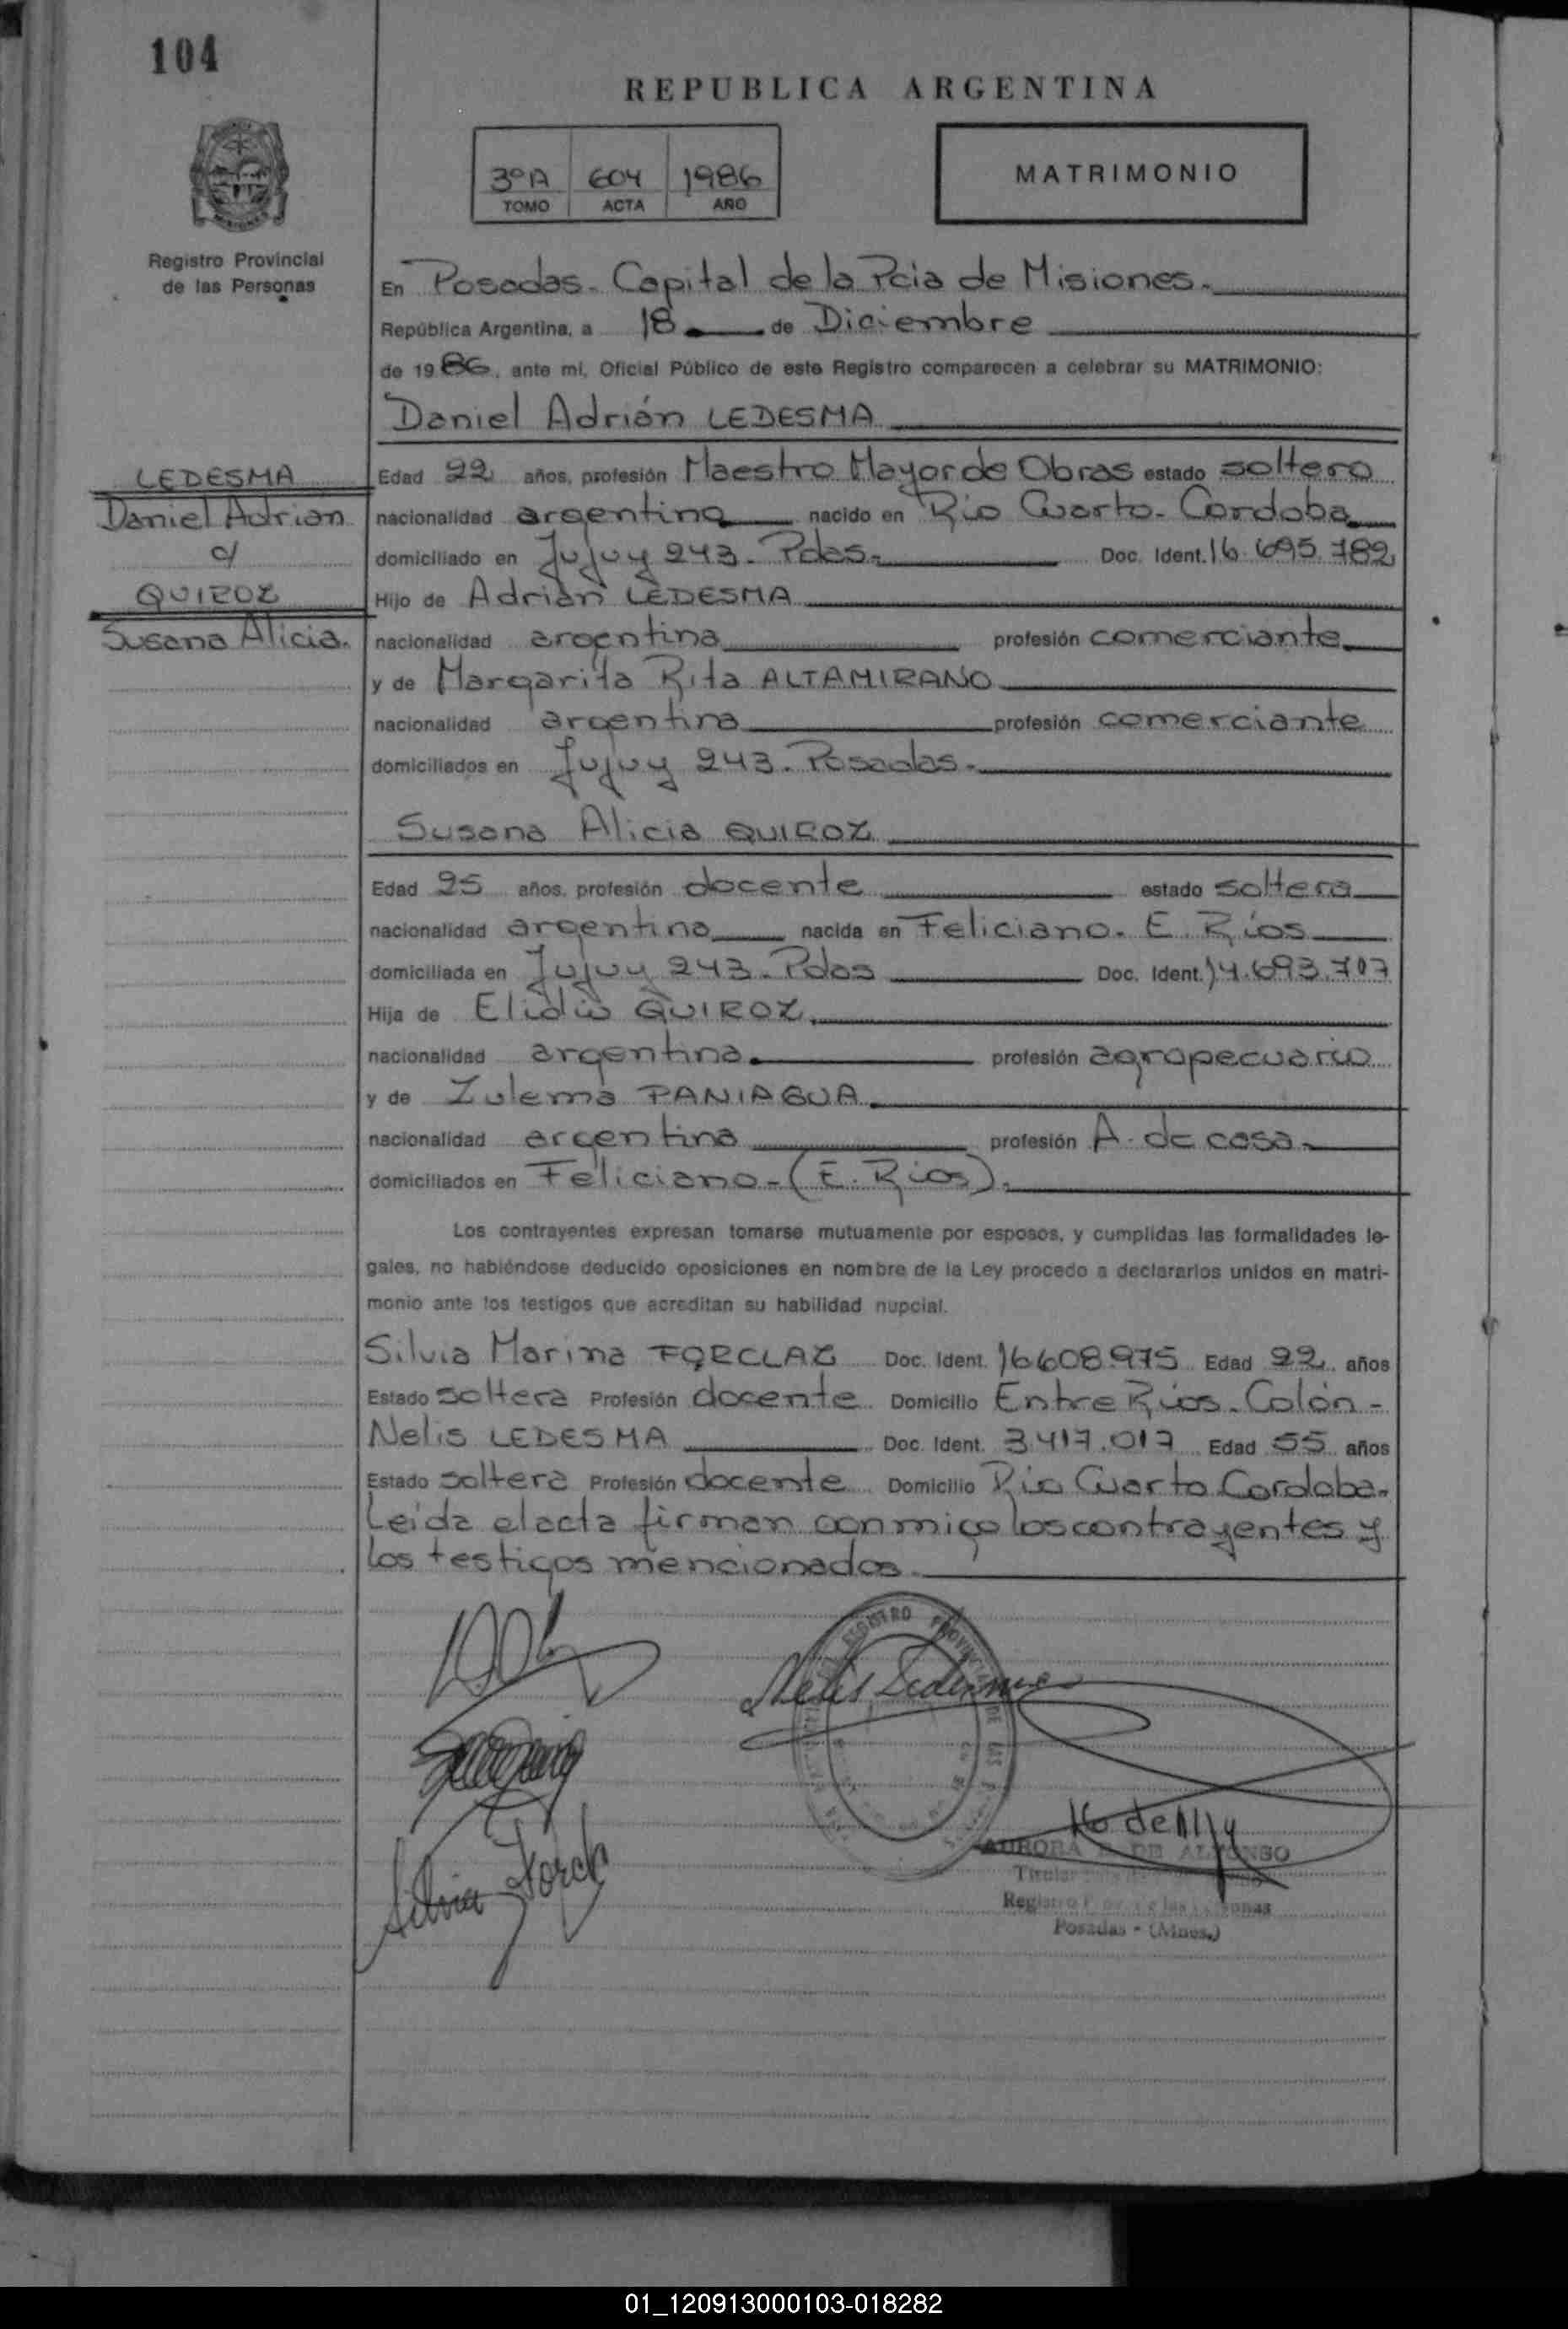 104
REPUBLICA ARGENTINA
3º A 604 1986
TOMO ACTA AÑO
MATRIMONIO
Registro Provincial
de las Personas
En Posadas - Capital de la Pcia de Misiones.
República Argentina, a 18 de Diciembre
de 1986, ante mi, Oficial Público de este Registro comparecen a celebrar su MATRIMONIO:
Daniel Adrián LEDESMA
LEDESMA
Daniel Adrian
c/
QUIROZ
Susana Alicia.
Edad 22 años, profesión Maestro Mayor de Obras estado soltero
nacionalidad argentina nacido en Rio Cuarto - Cordoba
domiciliado en Jujuy 243 - Pdas. Doc. Ident. 16.695.782
Hijo de Adrián LEDESMA
nacionalidad argentina profesión comerciante
y de Margarita Rita ALTAMIRANO
nacionalidad argentina profesión comerciante
domiciliados en Jujuy 243 - Posadas -
Susana Alicia QUIROZ
Edad 25 años, profesión docente estado soltera
nacionalidad argentina nacida en Feliciano - E. Ríos
domiciliada en Jujuy 243 - Pdas Doc. Ident. 14.693.707
Hija de Elidio QUIROZ
nacionalidad argentina profesión agropecuario
y de Zulema PANIAGUA
nacionalidad argentina profesión A. de casa
domiciliados en Feliciano - (E. Ríos).
Los contrayentes expresan tomarse mutuamente por esposos, y cumplidas las formalidades le-
gales, no habiéndose deducido oposiciones en nombre de la Ley procedo a declararlos unidos en matri-
monio ante los testigos que acreditan su habilidad nupcial.
Silvia Marina FORCLAZ Doc. Ident. 16608.975 Edad 22 años
Estado soltera Profesión docente Domicilio Entre Ríos - Colón -
Nelis LEDESMA Doc. Ident. 3.417.017 Edad 55 años
Estado soltera Profesión docente Domicilio Rio Cuarto Cordoba.
Leida el acta firman conmigo los contrayentes y
los testigos mencionados.
Nelis Ledesma
Silvia Forcl
REGISTRO PROVINCIAL DE LAS
AURORA DE ALFONSO
Titular
Registro Personas
Posadas - (Mnes.)
01_120913000103-018282